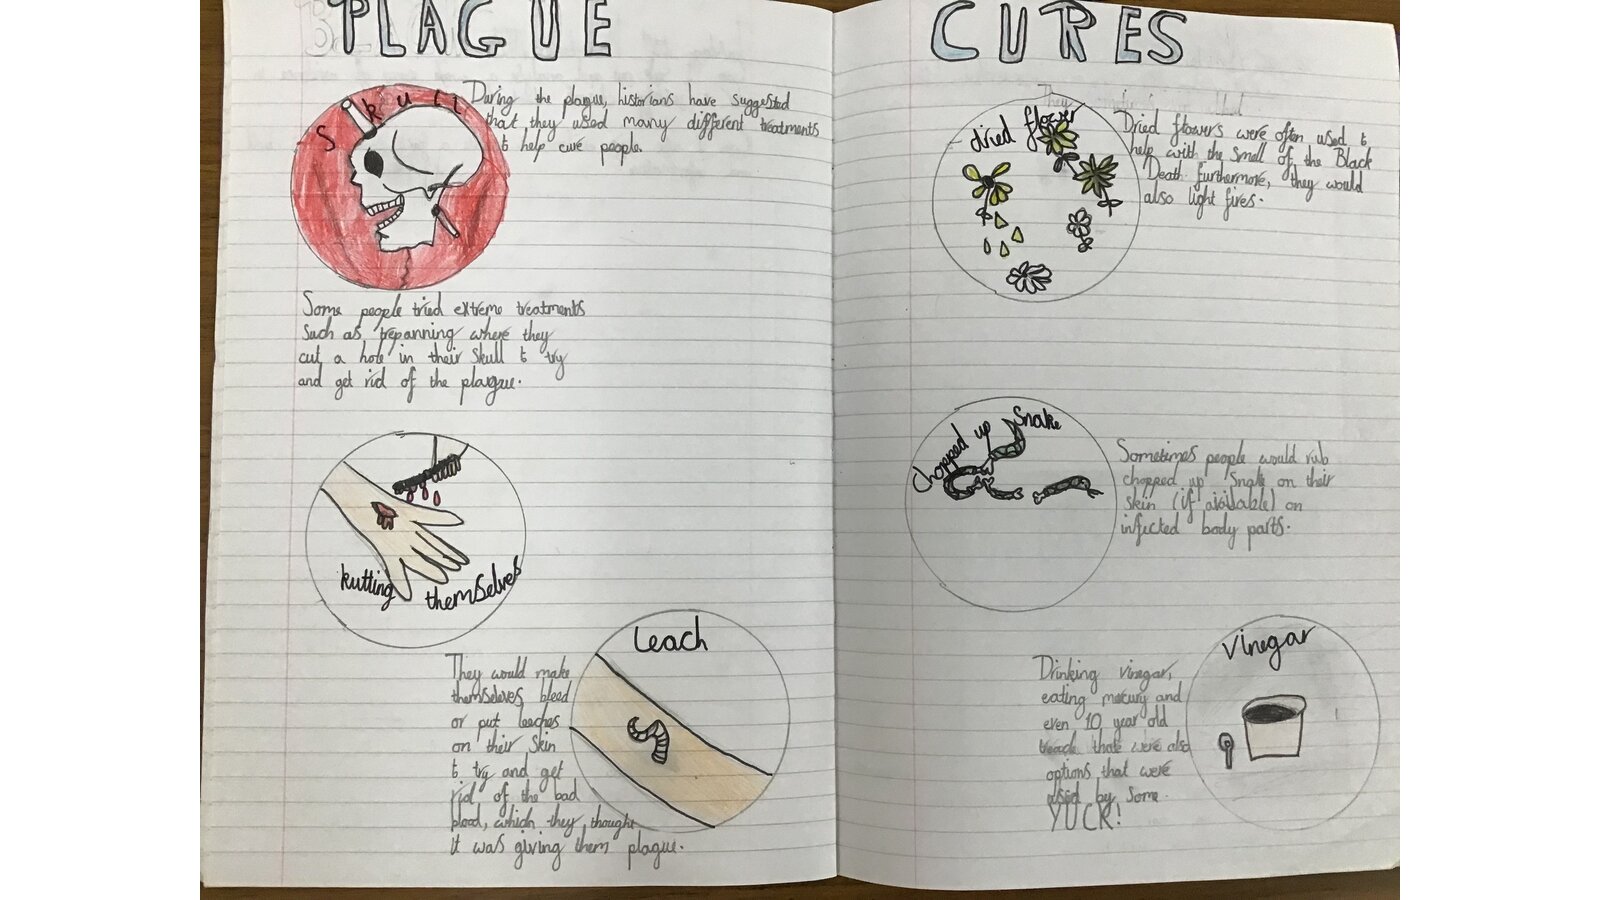 PLAGUE
Skull
During the plague, historians have suggested
that they used many different treatments
to help cure people.
Some people tried extreme treatments
such as trepanning where they
cut a hole in their skull to try
and get rid of the plague.
kutting themselves
Leach
They would make
themselves bleed
or put leeches
on their skin
to try and get
rid of the bad
blood, which they thought
it was giving them plague.
CURES
dried flower
Dried flowers were often used to
help with the smell of the Black
Death furthermore, they would
also light fires.
Chopped up Snake
Sometimes people would rub
chopped up Snake on their
skin (if available) on
infected body parts.
Vinegar
Drinking vinegar,
eating mercury and
even 10 year old
treacle that were also
options that were
used by some.
YUCK!